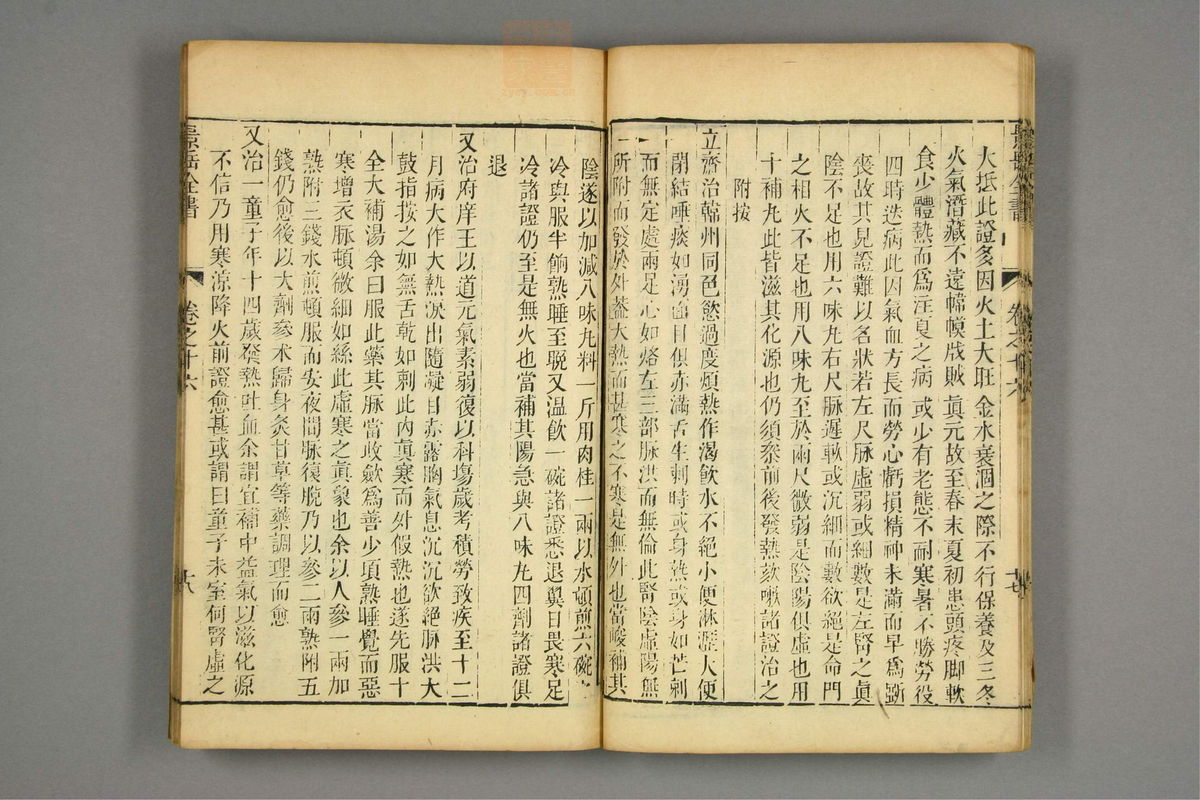 大抵此證多因火土大旺金水衰涸之際不行保養及三冬
火氣潛藏不遠幃幙戕賊眞元故至春末夏初患頭疼脚軟
食少體熱而爲注夏之病或少有老態不耐寒暑不勝勞役
四時迭病此因氣血方長而勞心虧損精神未滿而早爲斲
喪故其見證難以名狀若左尺脉虛弱或細數是左腎之眞
陰不足也用六味丸右尺脉遲軟或沉細而數欲絕是命門
之相火不足也用八味丸至於兩尺微弱是陰陽俱虛也用
十補丸此皆滋其化源也仍須叅前後發熱欬嗽諸證治之
附按
立齋治韓州同色慾過度煩熱作渴飲水不絕小便淋瀝大便
閉結唾痰如湧面目俱赤滿舌生刺時或身熱或身如芒刺
而無定處兩足心如烙左三部脉洪而無倫此腎陰虛陽無
所附而發於外葢大熱而甚寒之不寒是無水也當峻補其
景岳全書
卷之十六
陰遂以加減八味丸料一斤用肉桂一兩以水頓煎六碗
冷與服半餉熟睡至晚又温飲一碗諸證悉退翼日畏寒足
冷諸證仍至是無火也當補其陽急與八味丸四劑諸證俱
退
又治府庠王以道元氣素弱復以科塲歲考積勞致疾至十二
月病大作大熱泪出隨凝目赤露胸氣息沉沉欲絕脉洪大
鼓指按之如無舌乾如刺此內眞寒而外假熱也遂先服十
全大補湯余曰服此藥其脉當收歛爲善少項熟睡覺而惡
寒增衣脉頓微細如絲此虛寒之眞象也余以人參一兩加
熟附三錢水煎頓服而安夜間脉復脫乃以參二兩熟附五
錢仍愈後以大劑參术歸身炙甘草等藥調理而愈
又治一童子年十四歲發熱吐血余謂宜補中益氣以滋化源
不信乃用寒涼降火前證愈甚或謂曰童子未室何腎虛之
景岳全書
卷之十六